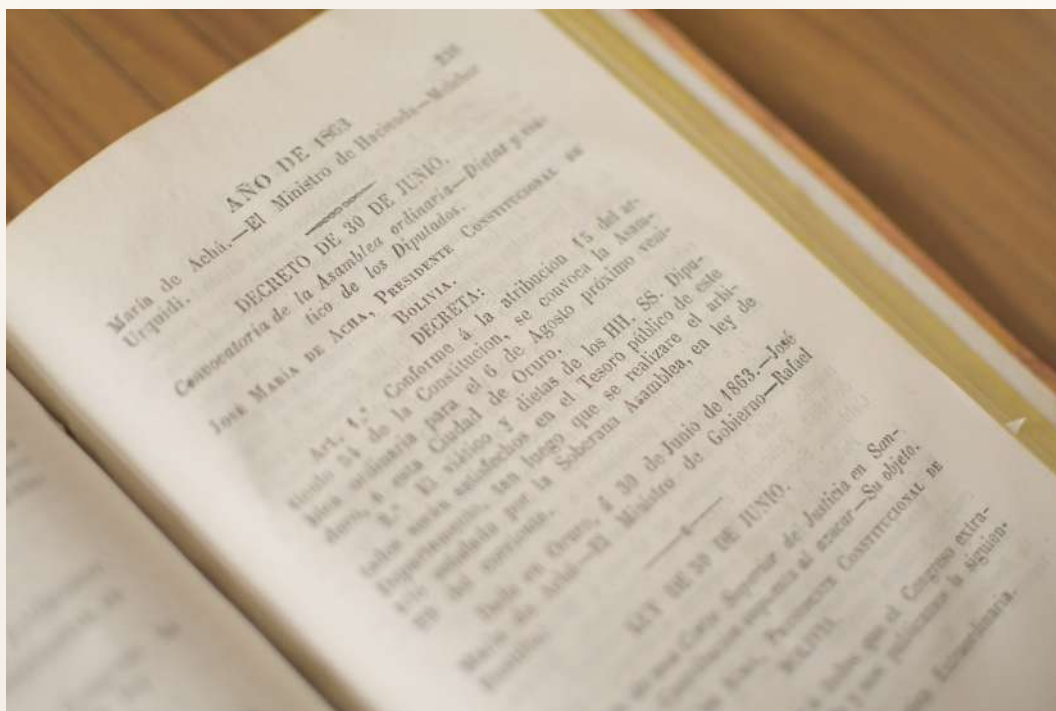 AÑO DE 1863
María de Achá.—El Ministro de Hacienda—Melchor
Urquidi.
DECRETO DE 30 DE JUNIO.
Convocatoria de la Asamblea ordinaria—Dietas y viá-
tico de los Diputados.
JOSÉ MARÍA DE ACHA, PRESIDENTE CONSTITUCIONAL EN
BOLIVIA.
DECRETA:
Art. 1.° Conforme á la atribucion 15 del ar-
tículo 54 de la Constitucion, se convoca la Asam-
blea ordinaria para el 6 de Agosto próximo veni-
dero, á esta Ciudad de Oruro.
2.° El viático y dietas de los HH. SS. Dipu-
tados serán satisfechos en el Tesoro público de este
Departamento, tan luego que se realizare el arbi-
por la Soberana Asamblea, en ley de
del corriente.
Dado en Oruro, á 30 de Junio de 1863.—José
María de Achá—El Ministro de Gobierno—Rafael
LEY DE 30 DE JUNIO.
una Corte Superior de Justicia en San-
al azucar—Su objeto.
PRESIDENTE CONSTITUCIONAL DE
BOLIVIA.
todos que el Congreso extra-
y nos publicamos la siguien-
Extraordinaria.